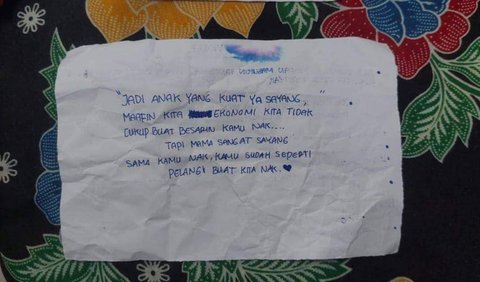 "JADI ANAK YANG KUAT Ya SAYANG, "
MAAFIN KITA EKONOMI KITA TIDAK
CUKUP BUAT BESARIN KAMU NAK....
TAPI MAMA SANGAT SAYANG
SAMA KAMU NAK, KAMU SUDAH SEPERTI
PELANGI BUAT KITA NAK. ♥